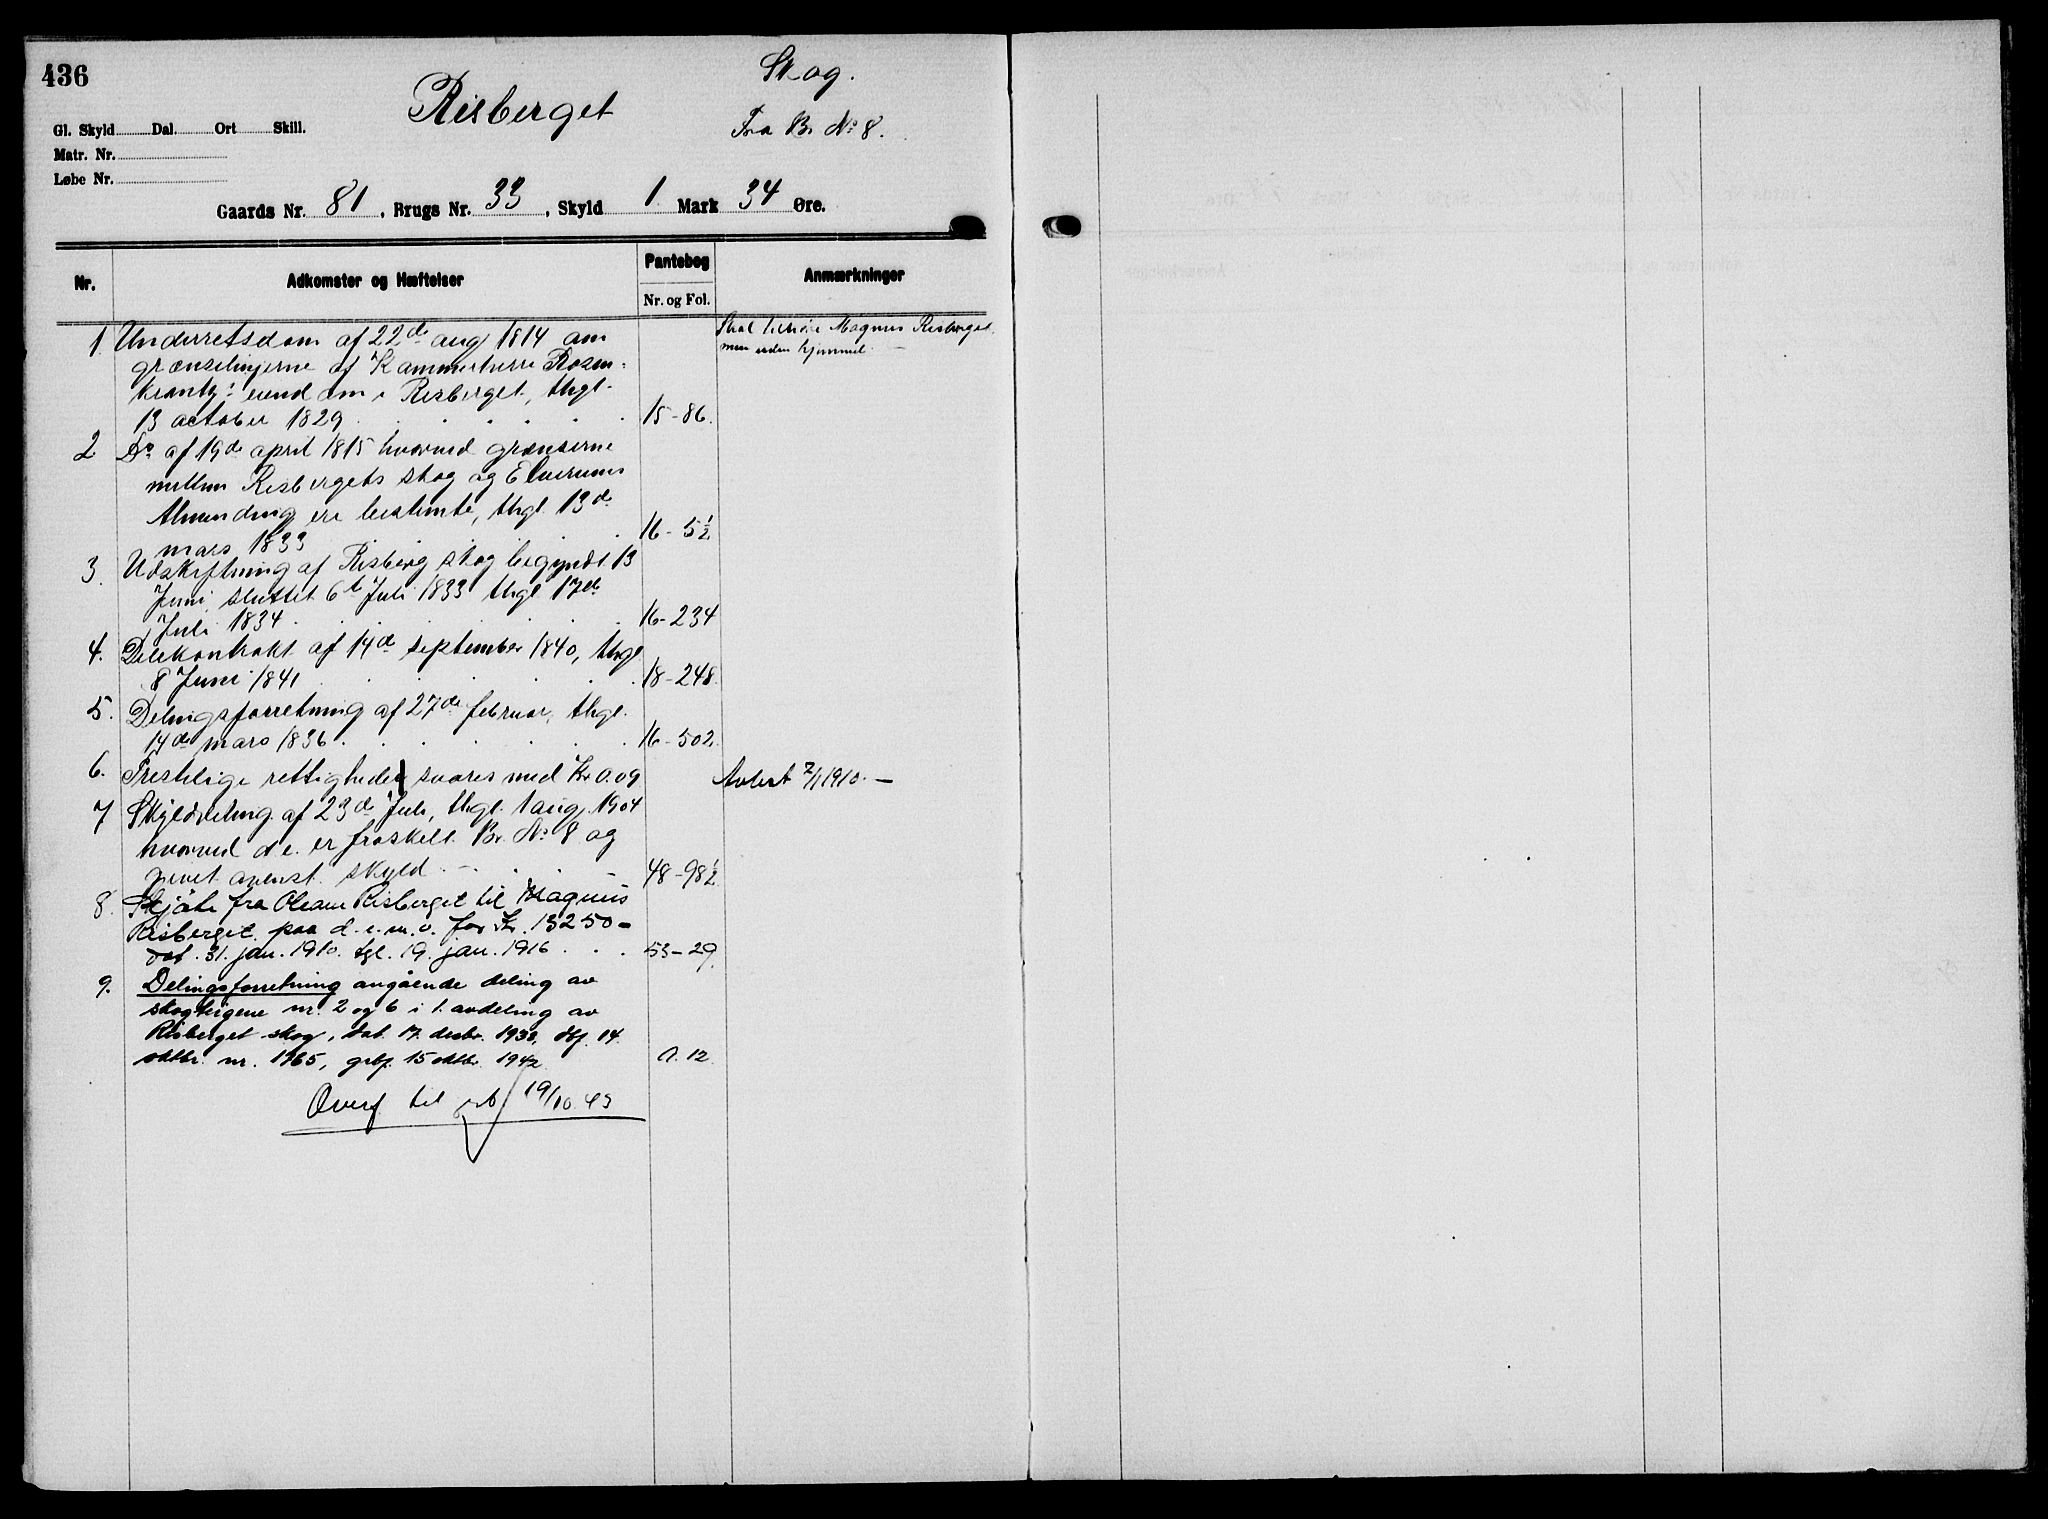 436
Risberget
Skog.
Fra Br. No 8.
Gl. Skyld Dal. Ort Skill.
Matr. Nr.
Løbe Nr.
Gaards Nr. 81, Brugs Nr. 33, Skyld 1 Mark 34 Øre.
Nr. Adkomster og Hæftelser Pantebog Anmærkninger
Nr. og Fol.
1. Underretsdom af 22de aug 1814 om
grænselinjerne af Kammerherre Rosen-
krantz' eiendom i Risberget, thgl.
13 october 1829 15-86.
Skal tilhøre Magnus Risberget
men uden hjemmel. —
2. Do af 19de april 1815 hvorved grænserne
mellem Risbergets skog og Elverums
Almending ere bestemte, thgl. 13de
mars 1833 16-5½
3. Udskiftning af Risberg skog begyndt 13
Juni, sluttet 6te Juli 1833 thgl 17de
Juli 1834 16-234
4. Delekontrakt af 14de september 1840, thgl
8 Juni 1841 18-248.
5. Delingsforretning af 27de februar, thgl.
14de mars 1836 16-502.
6. Prestelige rettigheder svares med Kr 0.09 Avlest 7/1 1910. —
7 Skylddeling af 23de Juli, thgl. 1 aug. 1904
hvorved d. e. er fraskilt Br. No 8 og
givet ovenst. skyld 48-98½
8. Skjøte fra Oleane Risberget til Magnus
Risberget paa d. e. m. v. for Kr. 13250-
dat. 31. jan. 1910. tgl. 19. jan. 1916 53-29.
9. Delingsforretning angående deling av
skogteigene nr. 2 og 6 i 1. avdeling av
Risberget skog, dat. 17. desbr. 1938, dbf. 14.
oktbr. nr. 1965, grbf. 15 oktbr. 1942 12.
Overf til 19/10.43